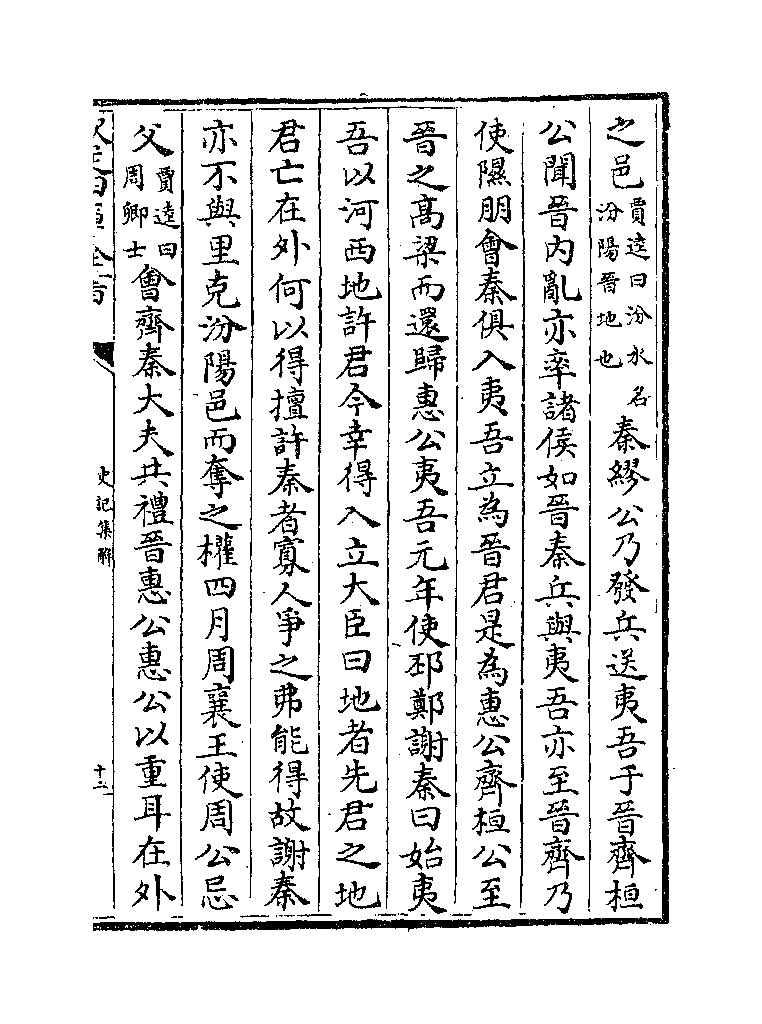 之邑賈逵曰汾水名汾陽晉地也秦繆公乃發兵送夷吾于晉齊桓
公聞晉内亂亦率諸侯如晉秦兵與夷吾亦至晉齊乃
使隰朋會秦俱入夷吾立為晉君是為惠公齊桓公至
晉之髙梁而還歸惠公夷吾元年使邳鄭謝秦曰始夷
吾以河西地許君今幸得入立大臣曰地者先君之地
君亡在外何以得擅許秦者寡人爭之弗能得故謝秦
亦不與里克汾陽邑而奪之權四月周襄王使周公忌
父賈逵曰周卿士會齊秦大夫共禮晉惠公惠公以重耳在外
史記集解